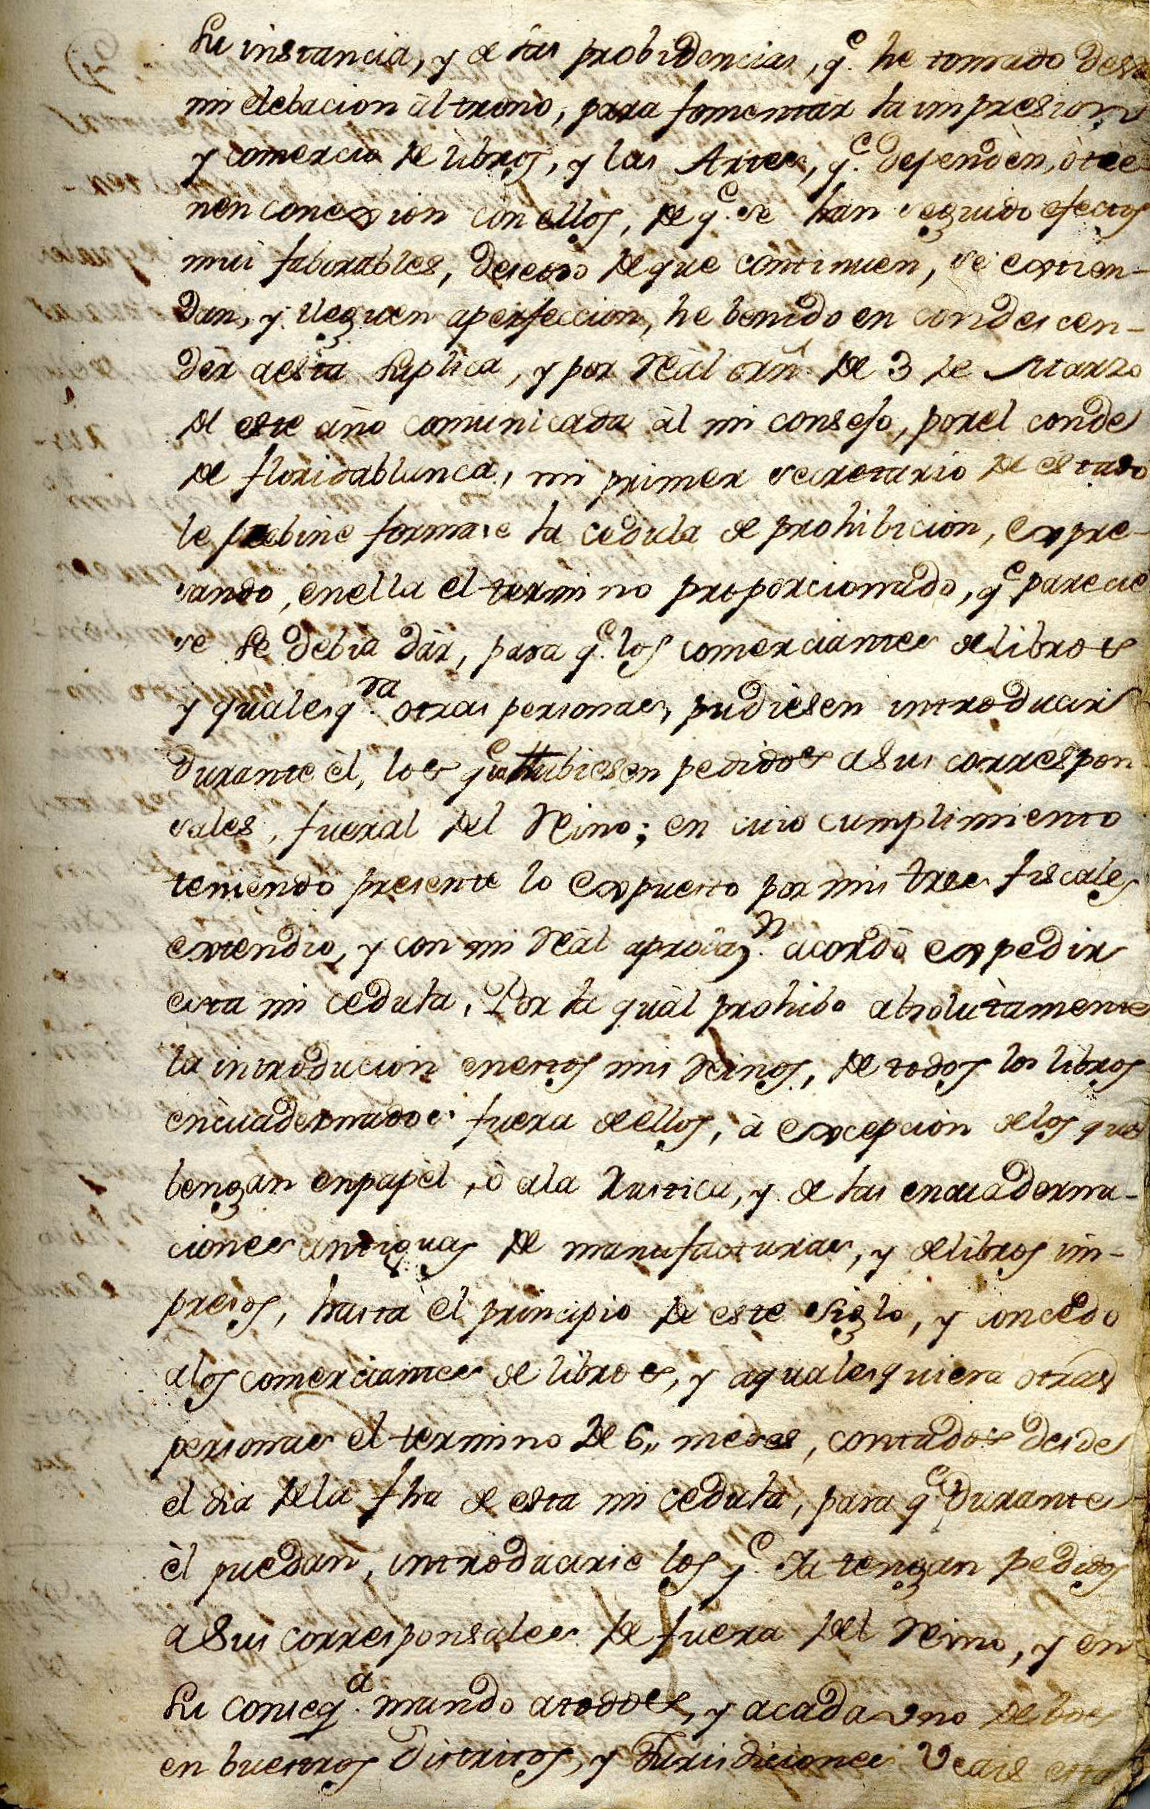 Su instancia, y de las probidencias, q.e he tomado desde
mi elebacion àl trono, para fomentàr la impresion
y comercio de libros, y las Artes, q.e dependèn, ò tie-
nen conexion con ellos, de q.e se han seguido efectos
mui faborables, deseoso de que continuen, se extien-
dan, y lleguen a perfeccion, he benido en condescen-
dèr a esta suplica, y por Reàl orñ. de 3 de Marzo
de este año comunicada àl mi consejo, por el conde
de floridablanca, mi primer secretario de estado
le prebine formase la cedula de prohibicion, expre-
sando, en ella el termino proporcionado, q.e parecie
se se debia dàr, para q.e los comerciantes de libros
y qualesq.ra otras personas, pudiesen introducir
durante èl, los q.e hubiesen pedidos a sus correspon
sales, fueral del Reino; en cuio cumplimiento
teniendo presente lo expuesto por mis tres fiscales
extendio, y con mi Reàl aprobaz.n acordò expedir
esta mi cedula. Por la quàl prohibo absolutamente
la introducion en estos mis Reinos, de todos los libros
encuadernados fuera de ellos, à excepcion de los que
bengan en papèl, ò a la Rustica, y de las encuaderna-
ciones antiguas de manufacturas, y de libros im-
presos, hasta èl principio de este Siglo, y concedo
a los comerciantes de libros, y a qualesquiera otras
personas el termino de 6,, meses, contados desde
el dia de la fha de esta mi cedula, para q.e durante
èl puedan, introducirse los q.e Ya tengan pedidos
a Sus corresponsales de fuera del Reino, y en
Su conseq.a mando a todos, y a cada uno de bos
en buestros Distritos, y Jurisdiciones Veais esta